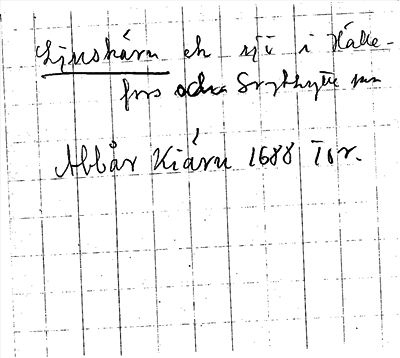 Ljuskärn ek sjö i Hälle-
fors och Grythytte sn
Abbår Kiärn 1688 Tor.